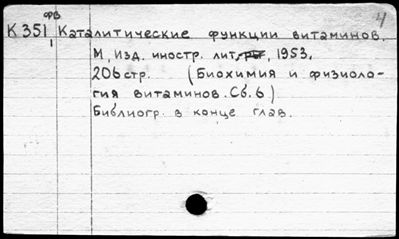 ФВ
4
К351 Каталитические функции витаминов.
М, Изд. иностр. лит., 1953.
206 стр. (Биохимия и физиоло-
гия витаминов. Сб. 6)
Библиогр. в конце глав.